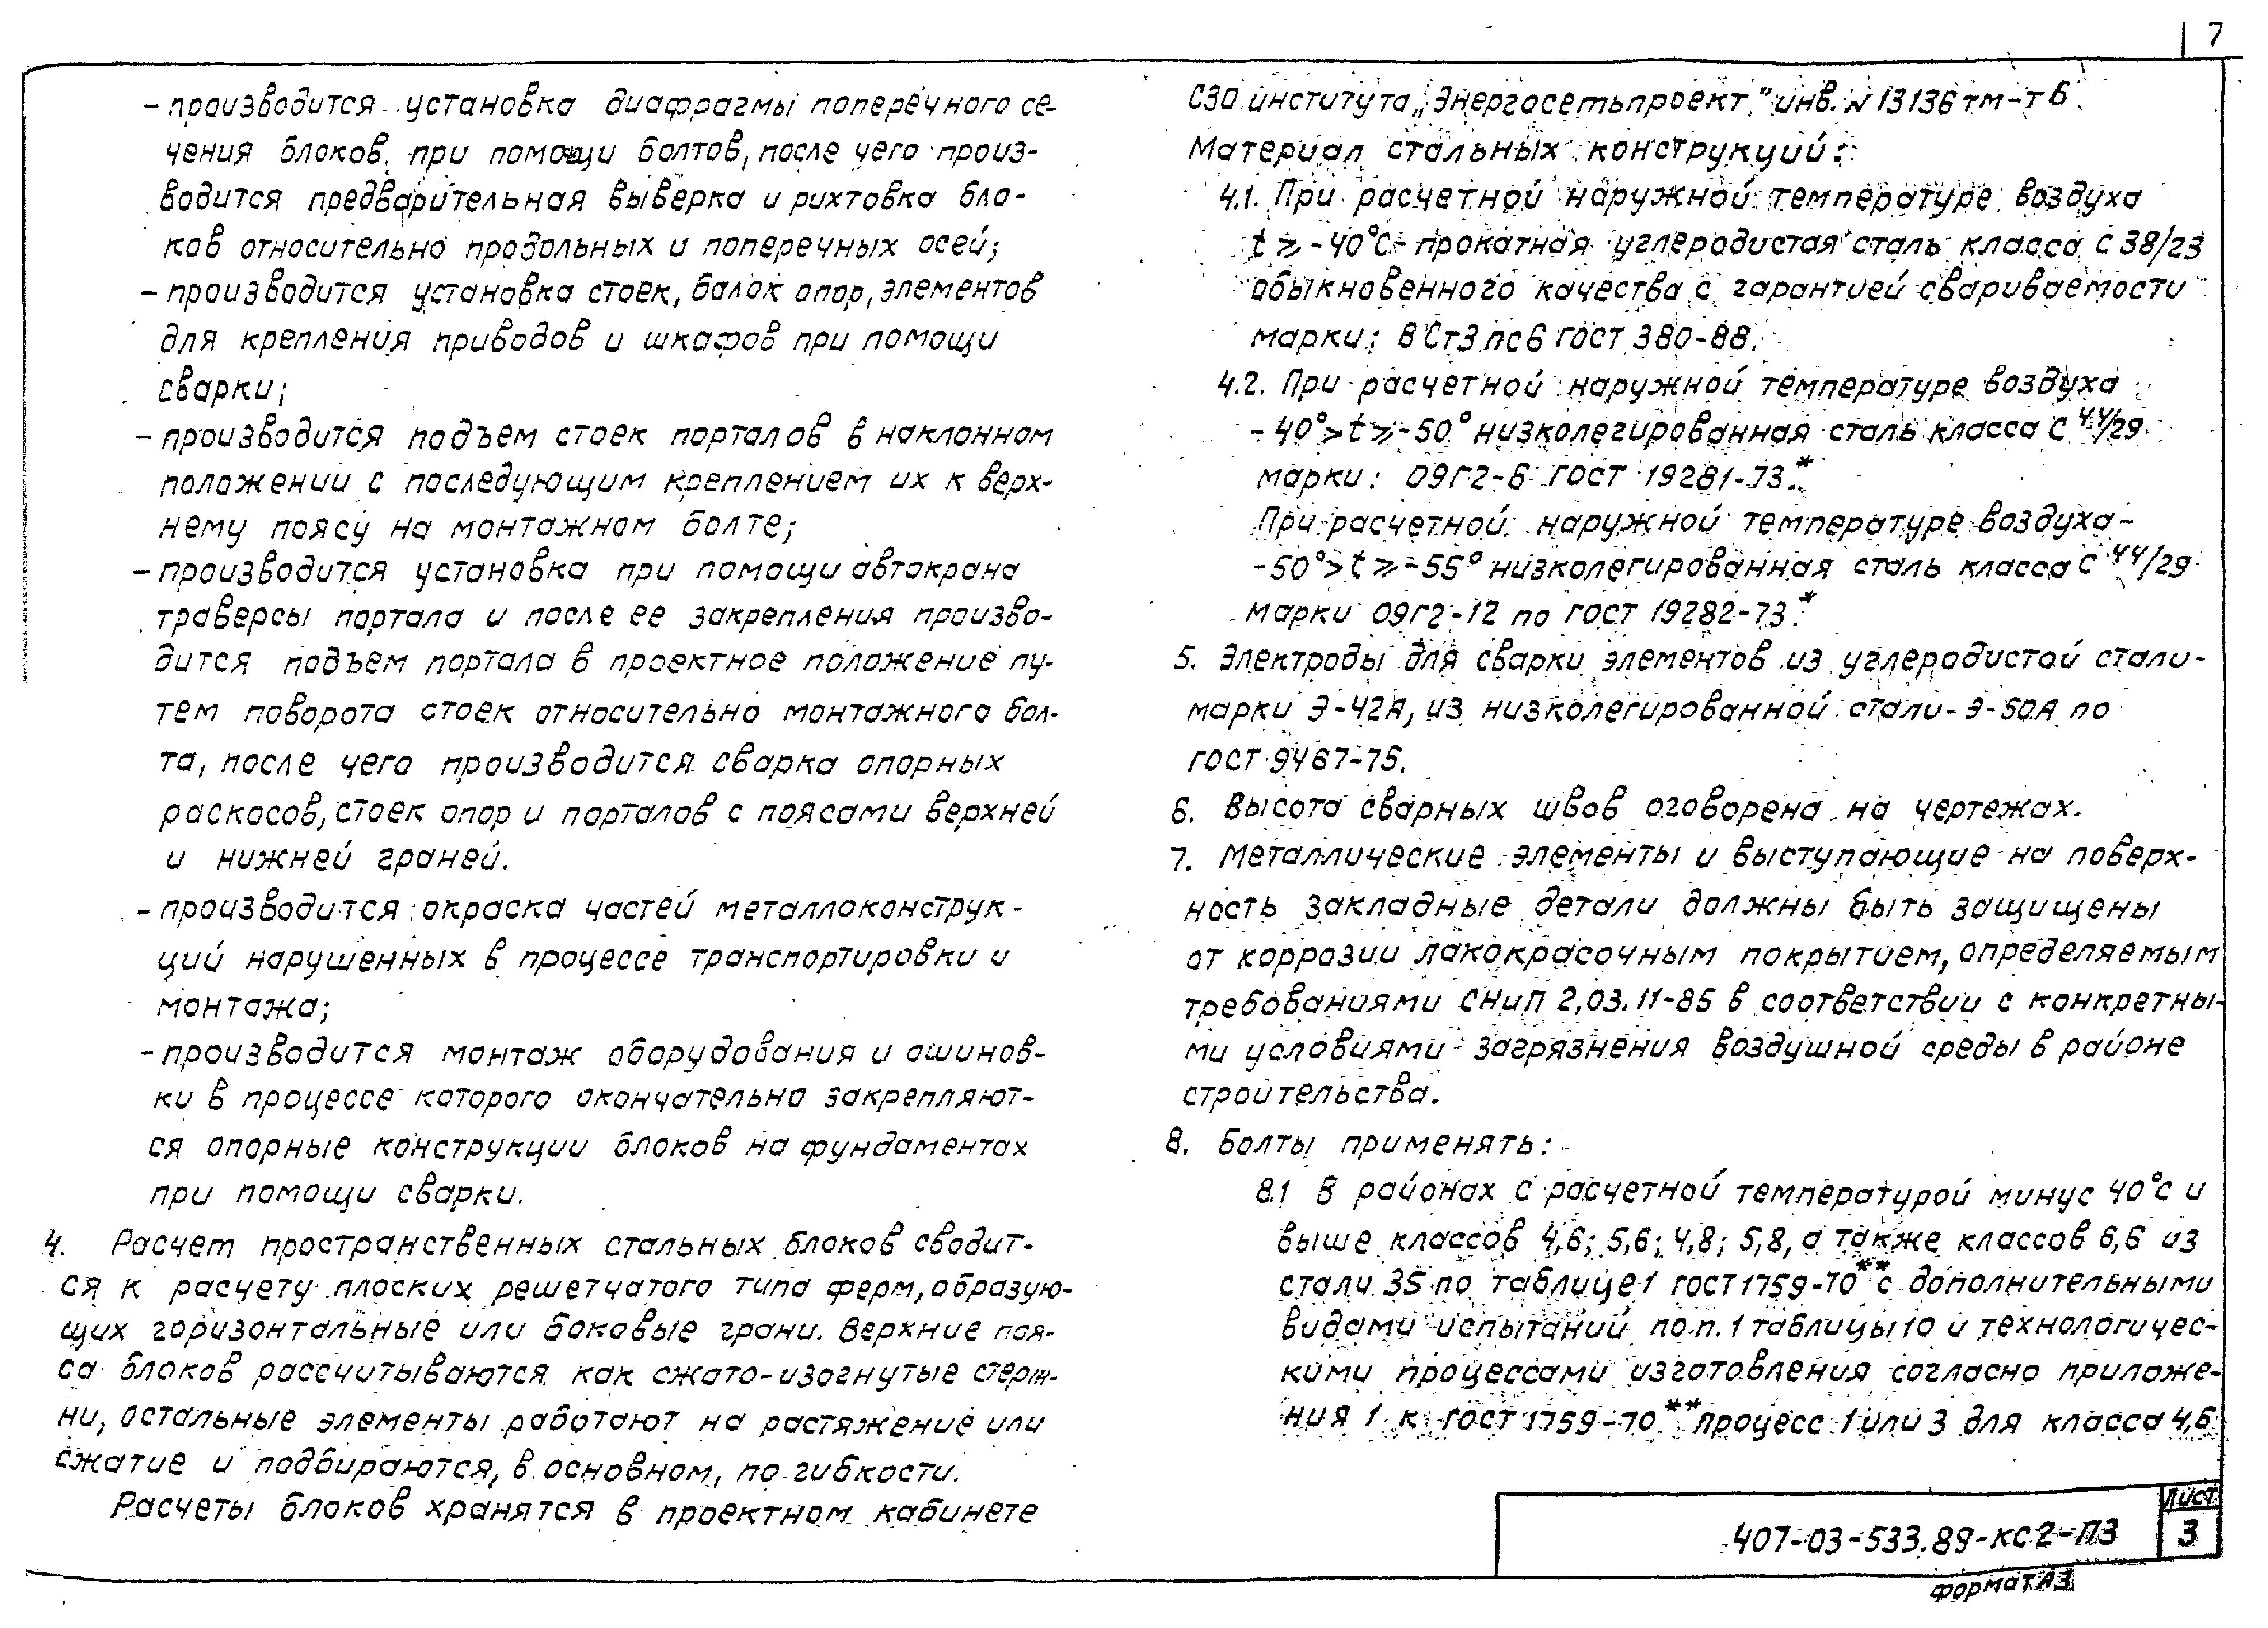 7
- производится установка диафрагмы поперечного се-
чения блоков, при помощи болтов, после чего произ-
водится предварительная выверка и рихтовка бло-
ков относительно продольных и поперечных осей;
- производится установка стоек, балок опор, элементов
для крепления приводов и шкафов при помощи
сварки;
- производится подъем стоек порталов в наклонном
положении с последующим креплением их к верх-
нему поясу на монтажном болте;
- производится установка при помощи автокрана
траверсы портала и после ее закрепления произво-
дится подъем портала в проектное положение пу-
тем поворота стоек относительно монтажного бол-
та, после чего производится сварка опорных
раскосов, стоек опор и порталов с поясами верхней
и нижней граней.
- производится окраска частей металлоконструк-
ций нарушенных в процессе транспортировки и
монтажа;
- производится монтаж оборудования и ошинов-
ки в процессе которого окончательно закрепляют-
ся опорные конструкции блоков на фундаментах
при помощи сварки.
4. Расчет пространственных стальных блоков сводит-
ся к расчету плоских решетчатого типа ферм, образую-
щих горизонтальные или боковые грани. Верхние поя-
са блоков рассчитываются как сжато-изогнутые стерж-
ни, остальные элементы работают на растяжение или
сжатие и подбираются, в основном, по гибкости.
Расчеты блоков хранятся в проектном кабинете
СЗО института „Энергосетьпроект" инв. N 13136 тм-т 6.
Материал стальных конструкций:
4.1. При расчетной наружной температуре воздуха
t ⩾ -40°С- прокатная углеродистая сталь класса С 38/23
обыкновенного качества с гарантией свариваемости
марки: ВСт3пс6 ГОСТ 380-88.
4.2. При расчетной наружной температуре воздуха
-40°>t⩾-50° низколегированная сталь класса С 44/29
марки: 09Г2-6 ГОСТ 19281-73.*
При расчетной наружной температуре воздуха-
-50°>t⩾-55° низколегированная сталь класса С 44/29
марки 09Г2-12 по ГОСТ 19282-73.*
5. Электроды для сварки элементов из углеродистой стали-
марки Э-42А, из низколегированной стали- Э-50А по
ГОСТ 9467-75.
6. Высота сварных швов оговорена на чертежах.
7. Металлические элементы и выступающие на поверх-
ность закладные детали должны быть защищены
от коррозии лакокрасочным покрытием, определяемым
требованиями СНиП 2,03.11-85 в соответствии с конкретны-
ми условиями загрязнения воздушной среды в районе
строительства.
8. Болты применять:
8.1 В районах с расчетной температурой минус 40°с и
выше классов 4,6; 5,6; 4,8; 5,8, а также классов 6,6 из
стали 35 по таблице 1 ГОСТ 1759-70** с дополнительными
видами испытаний по п. 1 таблицы 10 и технологичес-
кими процессами изготовления согласно приложе-
ния 1 к ГОСТ 1759-70** процесс 1 или 3 для класса 4,6
407-03-533.89-КС2-ПЗ
Лист
3
Формат А3